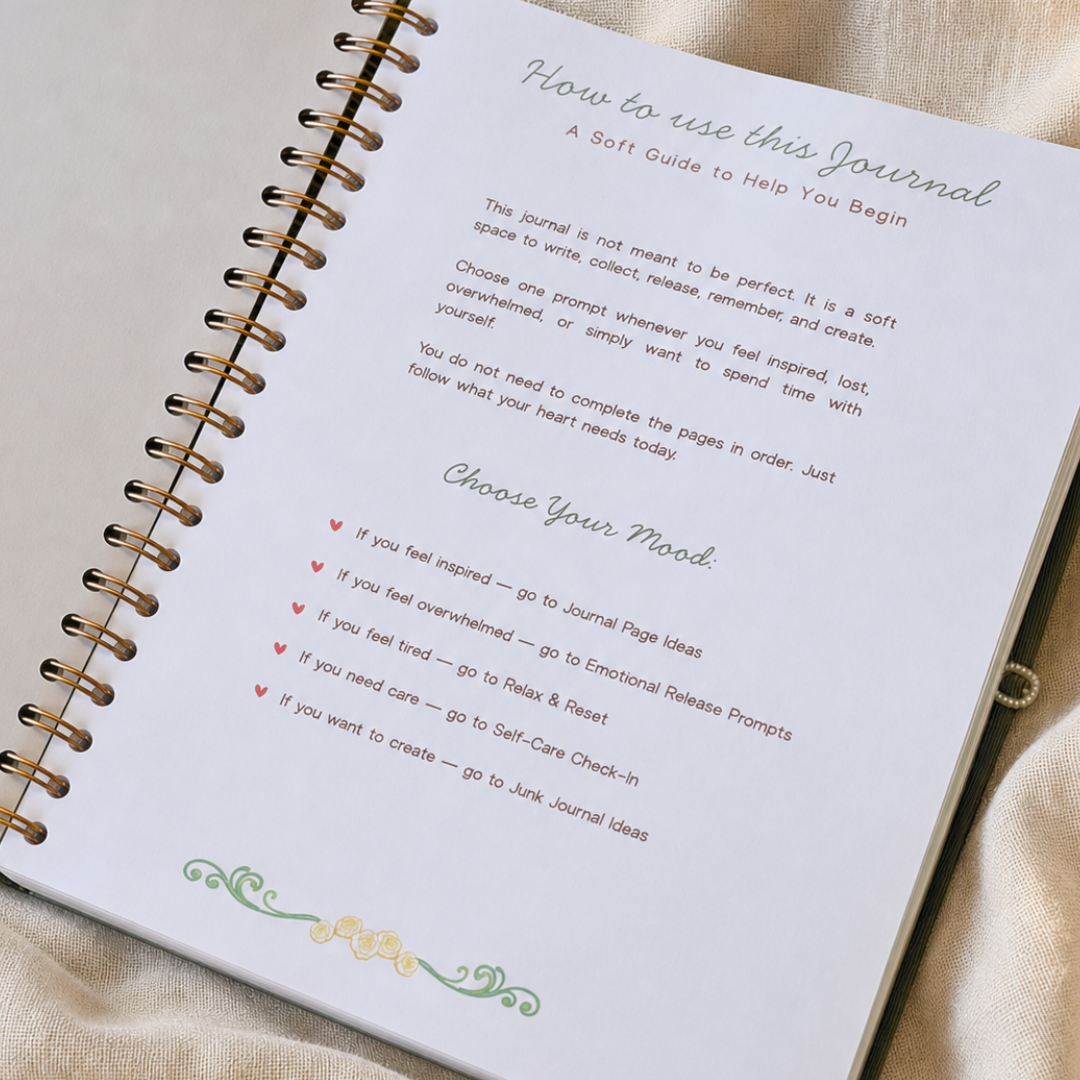 How to use this Journal
A Soft Guide to Help You Begin
This journal is not meant to be perfect. It is a soft
space to write, collect, release, remember, and create.
Choose one prompt whenever you feel inspired, lost,
overwhelmed, or simply want to spend time with
yourself.
You do not need to complete the pages in order. Just
follow what your heart needs today.
Choose Your Mood:
If you feel inspired — go to Journal Page Ideas
If you feel overwhelmed — go to Emotional Release Prompts
If you feel tired — go to Relax & Reset
If you need care — go to Self-Care Check-In
If you want to create — go to Junk Journal Ideas